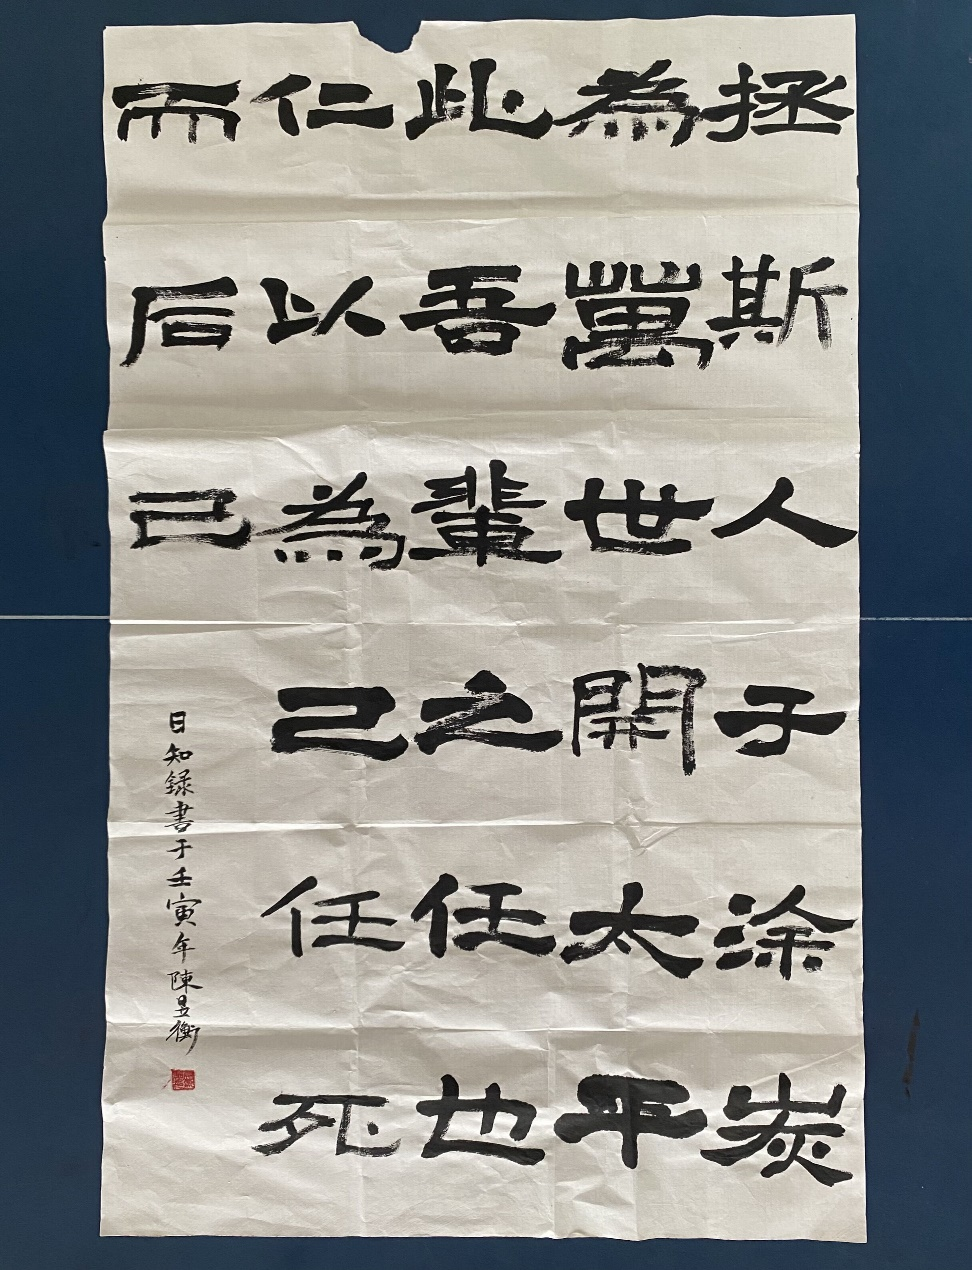 拯斯人于涂炭
為萬世開太平
此吾輩之任也
仁以為己任死
而后已
日知録書于壬寅年陳昱衡